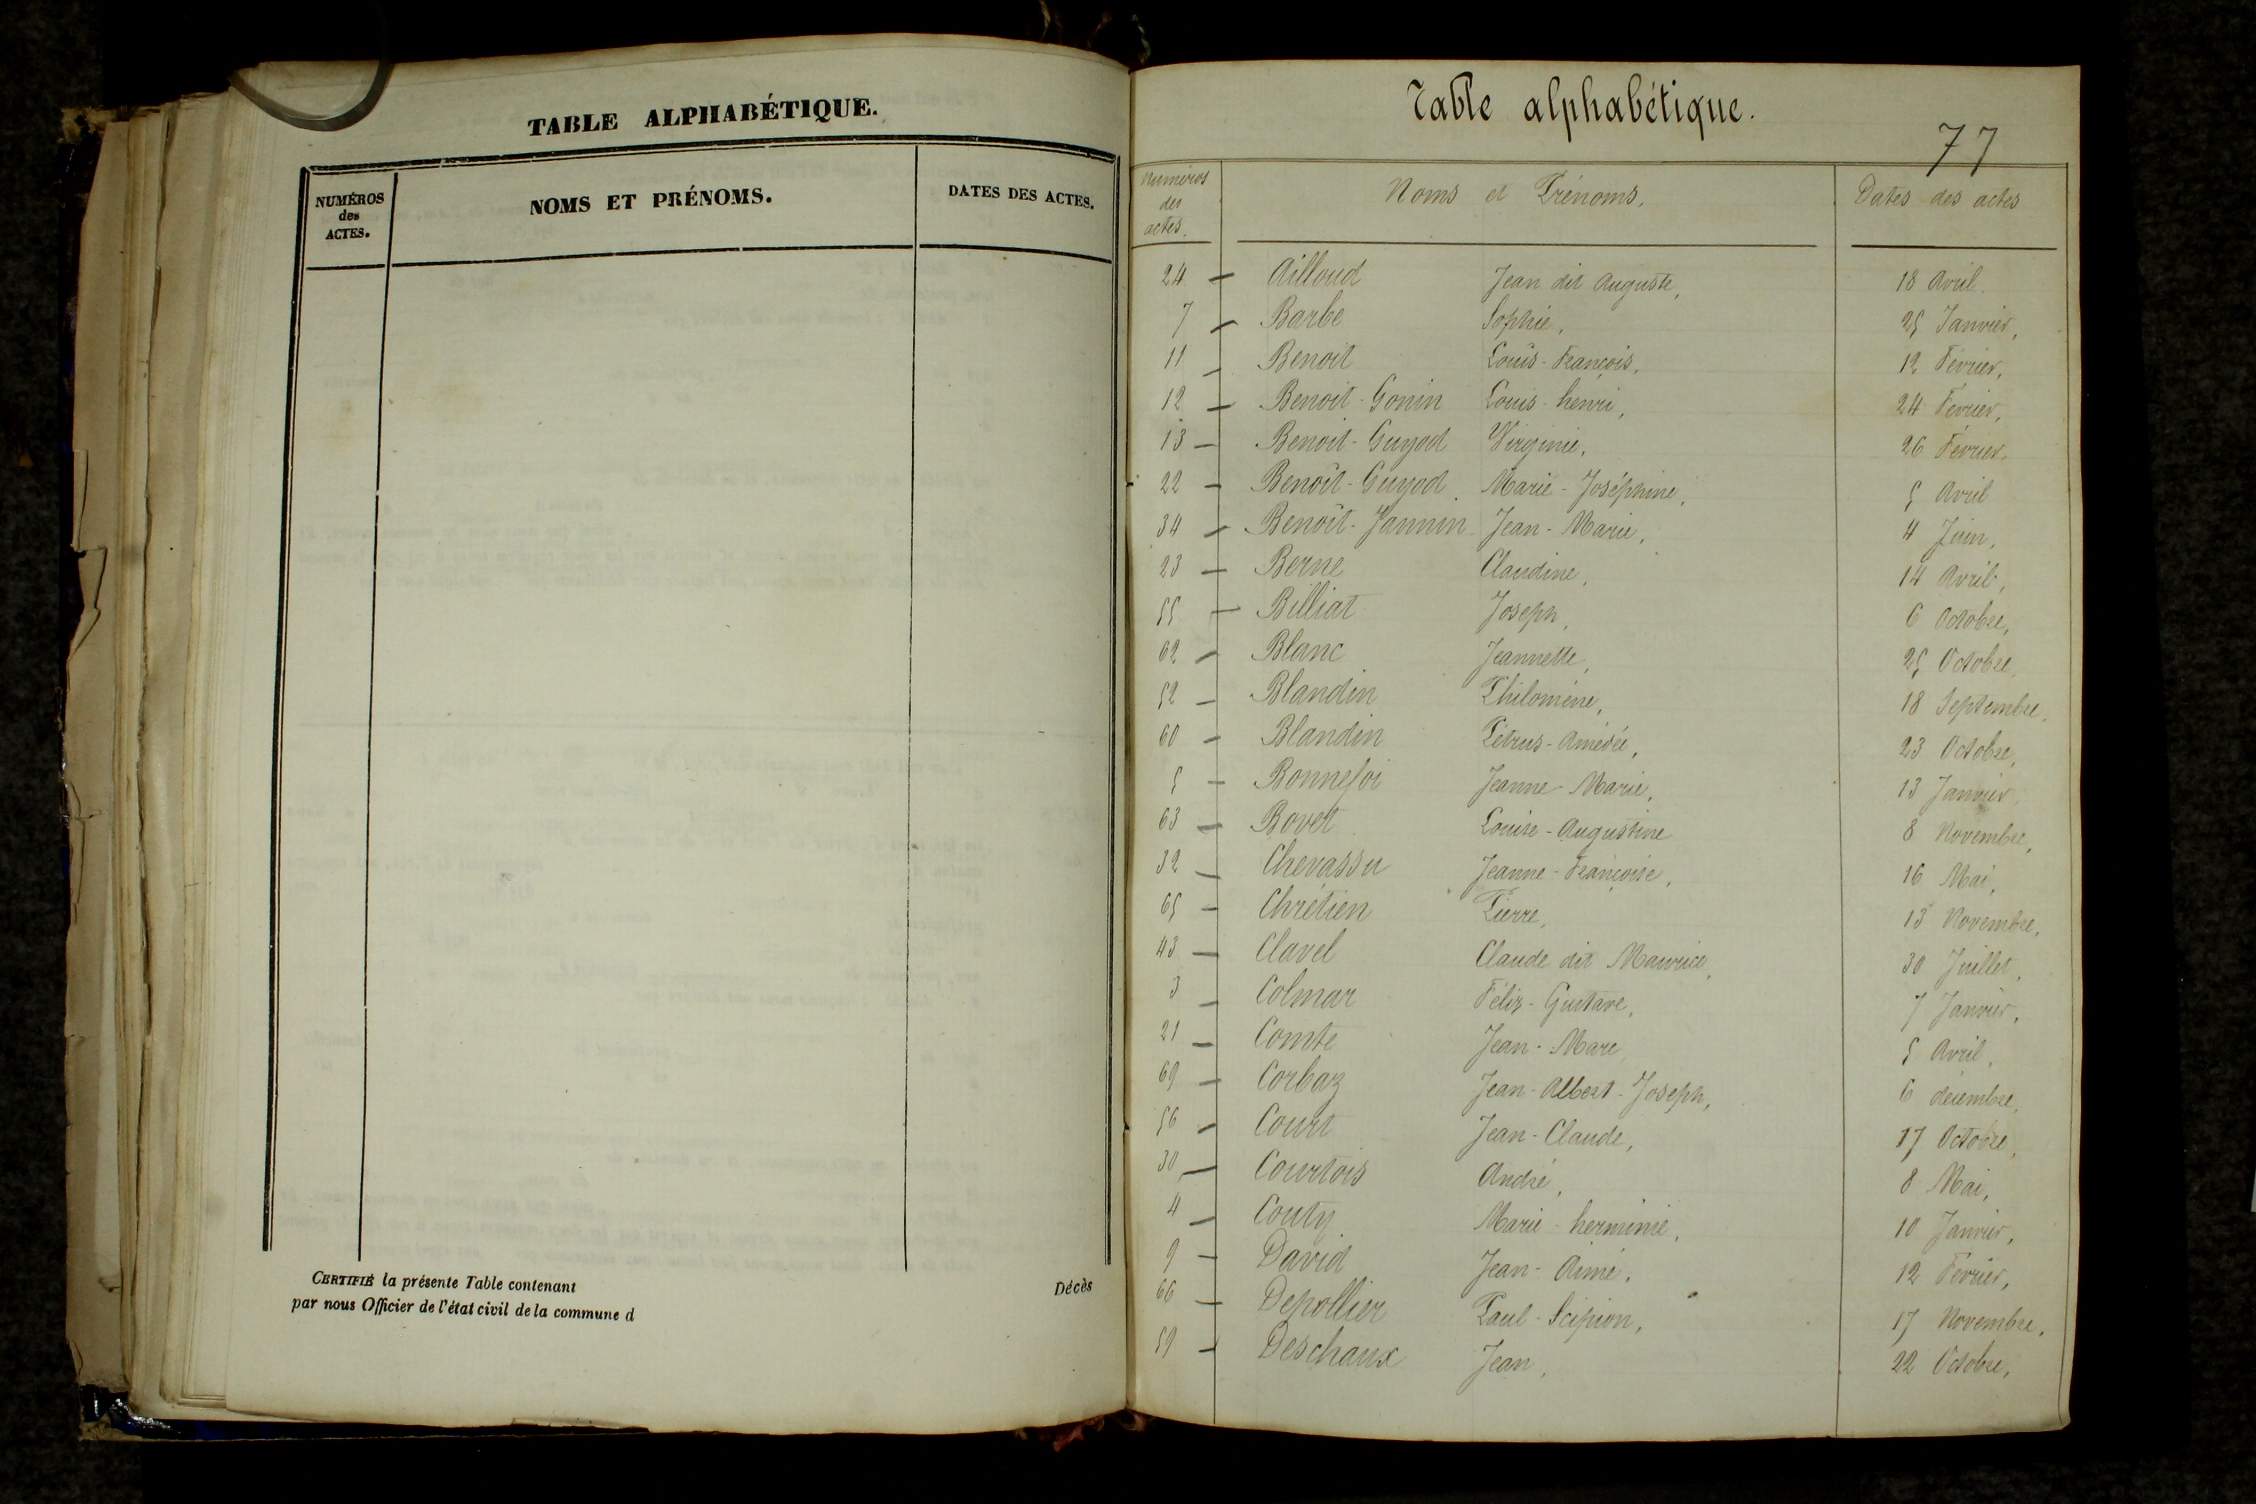 TABLE ALPHABÉTIQUE.
NUMÉROS des ACTES. NOMS ET PRÉNOMS. DATES DES ACTES.
CERTIFIÉ la présente Table contenant Décès
par nous Officier de l'état civil de la commune d
Table alphabétique.
77
Numéros des actes. Noms et Prénoms. Dates des actes
24 — Ailloud Jean dit Auguste, 18 Avril.
7 — Barbe Sophie, 25 Janvier,
11 — Benoit Louis-François, 12 Février,
12 — Benoit-Gonin Louis-henri, 24 Février,
13 — Benoit-Guyod Virginie, 26 Février,
22 — Benoît-Guyod. Marie-Joséphine, 5 Avril
34 — Benoît-Jannin Jean-Marie, 4 Juin,
23 — Berne Claudine, 14 Avril,
55 — Billiat Joseph, 6 Octobre,
62 — Blanc Jeannette, 25 Octobre,
52 — Blandin Philomène, 18 Septembre,
60 — Blandin Pétrus-Amédée, 23 Octobre,
5 — Bonnefoi Jeanne-Marie, 13 Janvier,
63 — Bovet Louise-Augustine 8 Novembre,
32 — Chevassu Jeanne-Françoise, 16 Mai,
65 — Chrétien Pierre, 13 Novembre,
43 — Clavel Claude dit Maurice, 30 Juillet,
3 — Colmar Félix-Gustave, 7 Janvier,
21 — Comte Jean-Marc 5 Avril,
69 — Corbaz Jean-Albert-Joseph, 6 décembre,
56 — Court Jean-Claude, 17 Octobre,
30 — Courtois André, 8 Mai,
4 — Couty Marie-herminie, 10 Janvier,
9 — David Jean-Aimé, 12 Février,
66 — Depollier Paul-Scipion, 17 Novembre,
59 — Deschaux Jean, 22 Octobre,